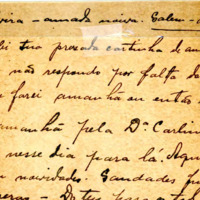 eira - amada noiva. Salem -
ei tua presada cartinha de am
não respondo por falta d
farei amanhã ou então
amanhã pela Dª Carlin
nesse dia para lá. Aqui
novidades. Saudades